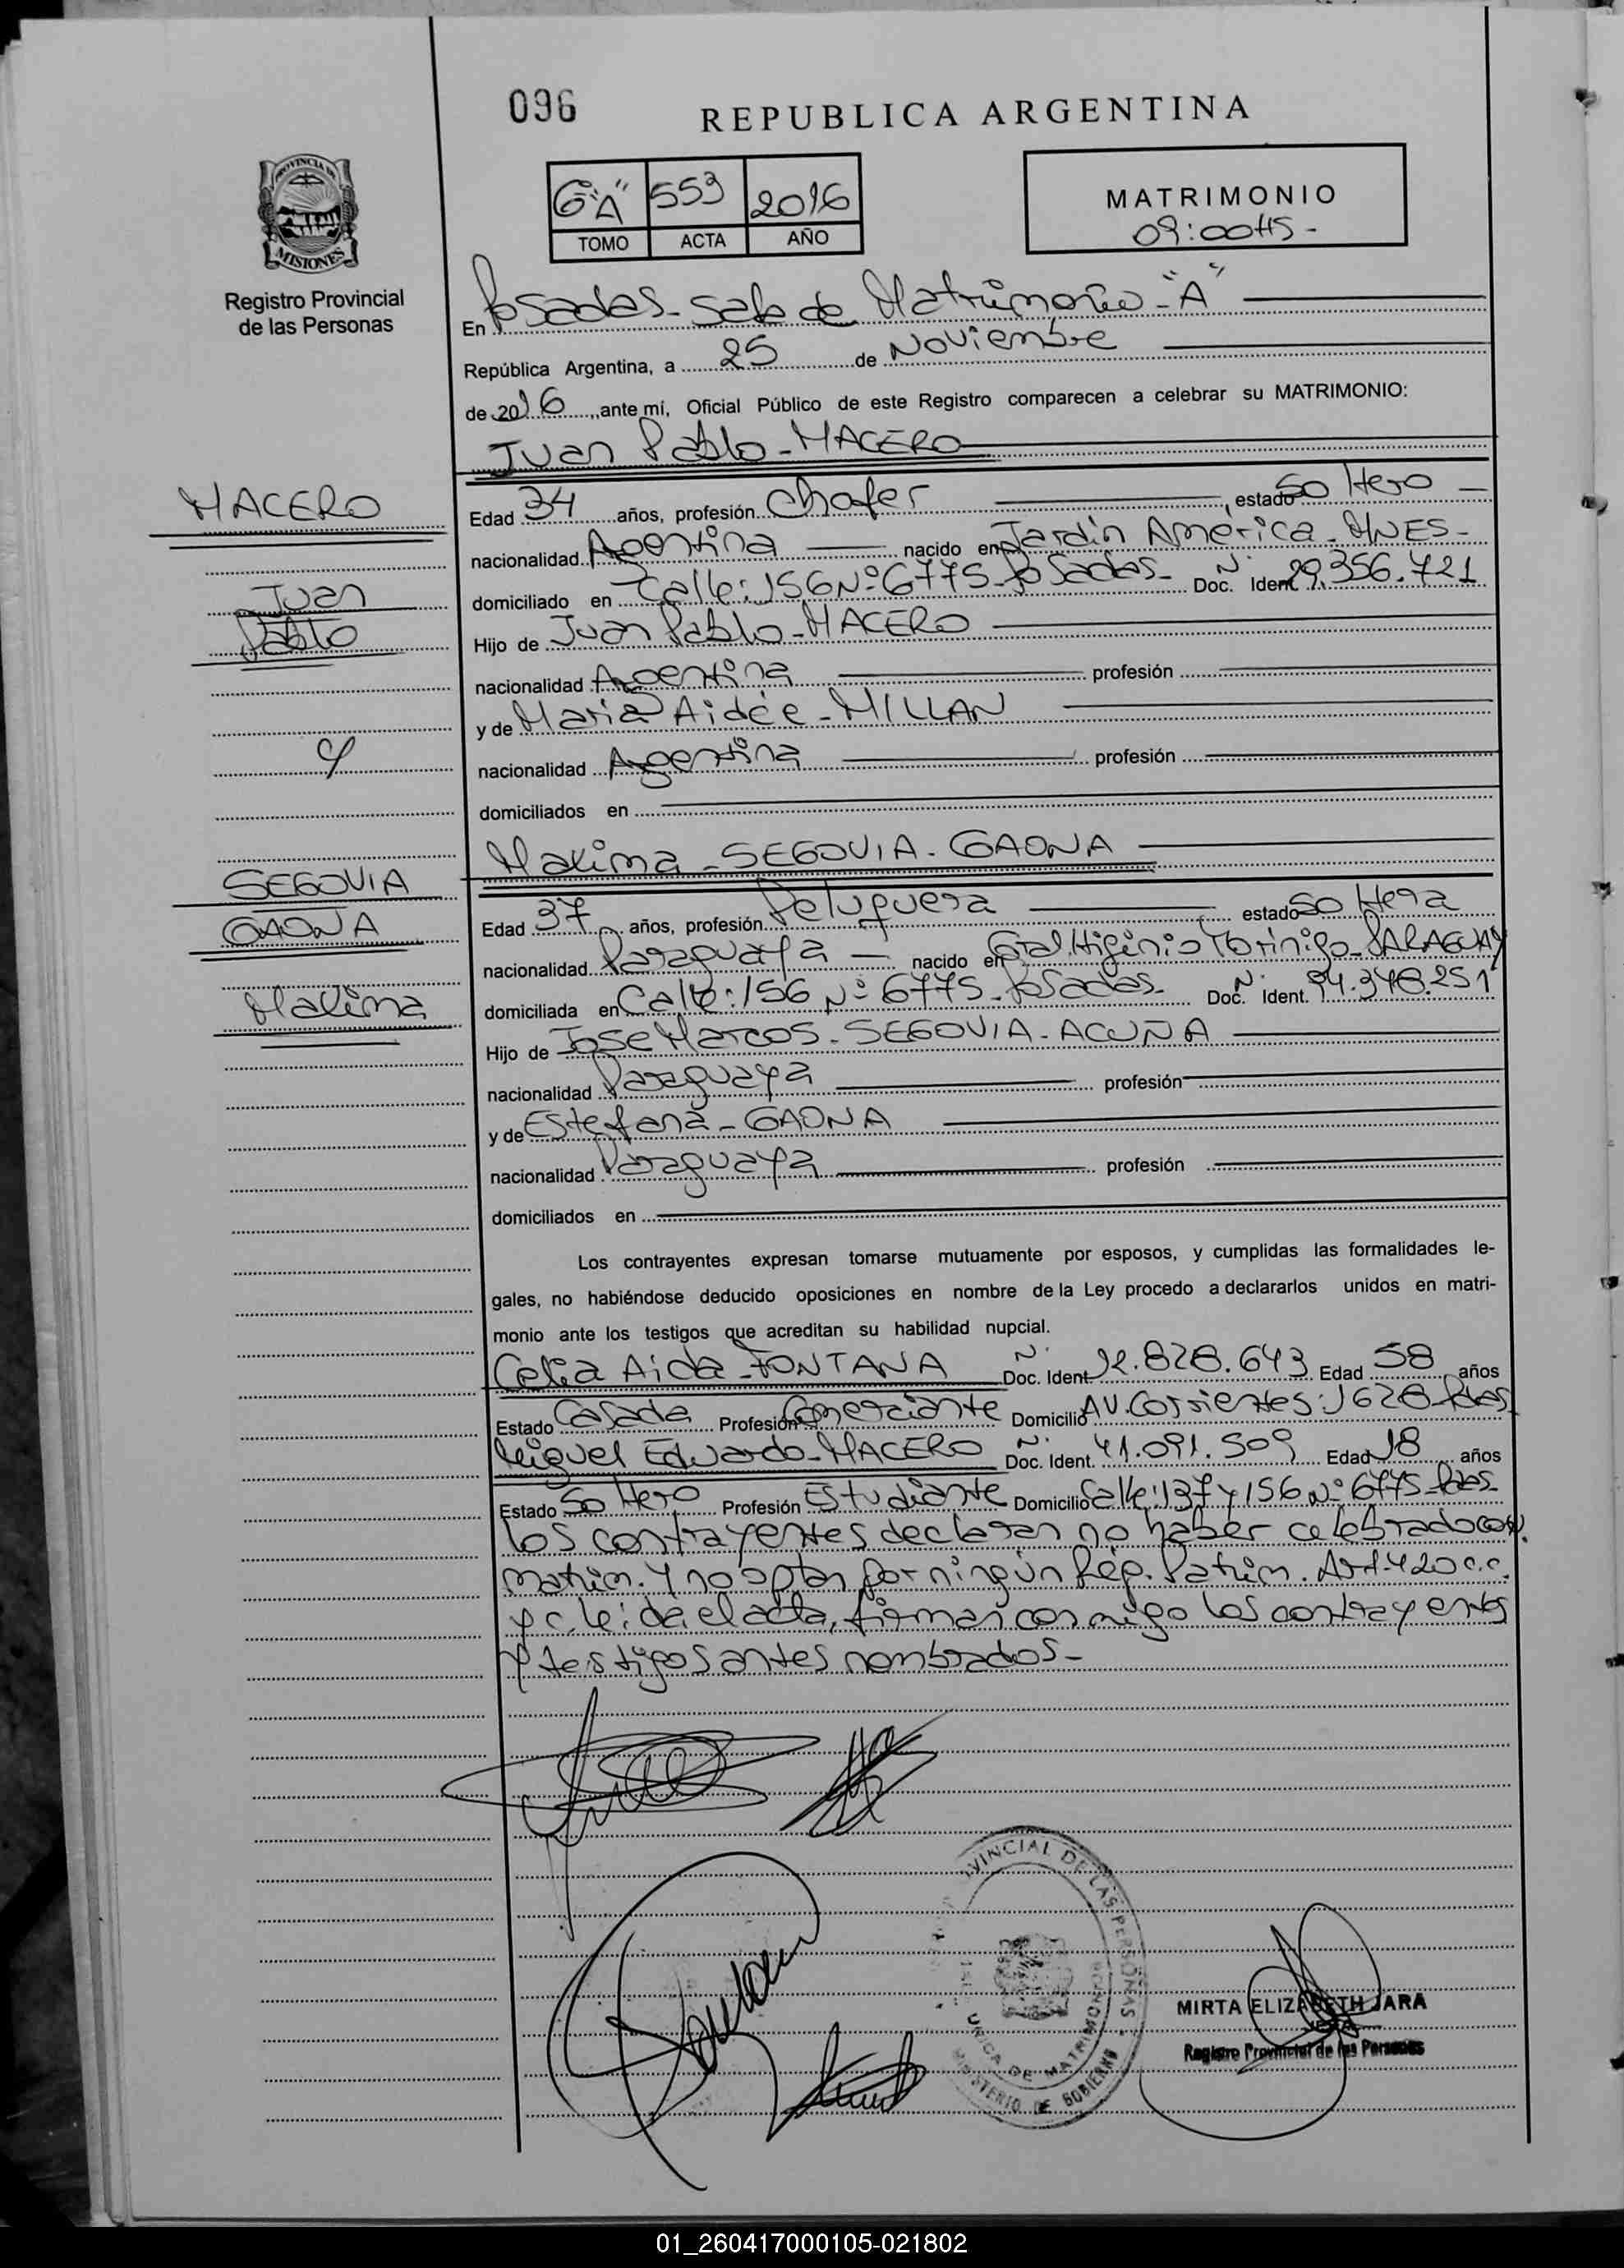 096
REPUBLICA ARGENTINA
PROVINCIA DE
MISIONES
Registro Provincial
de las Personas
6º"A" 553 2016
TOMO ACTA AÑO
MATRIMONIO
09:00HS-
En Posadas-Sala de Matrimonio-"A"
República Argentina, a 25 de Noviembre
de 2016, ante mí, Oficial Público de este Registro comparecen a celebrar su MATRIMONIO:
Juan Pablo-MACERO
MACERO
Juan
Pablo
y
SEGOVIA
GAONA
Maxima
Edad 34 años, profesión Chofer, estado Soltero
nacionalidad Argentina nacido en Jardín América-MNES-
domiciliado en Calle:156Nº6775-Posadas- Doc. Ident. Nº 29.356.721
Hijo de Juan Pablo-MACERO
nacionalidad Argentina profesión
y de Maria Aidée-MILLAN
nacionalidad Argentina profesión
domiciliados en
Maxima-SEGOVIA-GAONA
Edad 37 años, profesión Peluquera estado Soltera
nacionalidad Paraguaya nacido en Gral. Higinio Morinigo-PARAGUAY
domiciliada en Calle:156 Nº 6775-Posadas- Doc. Ident. Nº 94.348.251
Hijo de Jose Marcos-SEGOVIA-ACUÑA
nacionalidad Paraguaya profesión
y de Estefana-GAONA
nacionalidad Paraguaya profesión
domiciliados en
Los contrayentes expresan tomarse mutuamente por esposos, y cumplidas las formalidades le-
gales, no habiéndose deducido oposiciones en nombre de la Ley procedo a declararlos unidos en matri-
monio ante los testigos que acreditan su habilidad nupcial.
Celia Aida-FONTANA Doc. Ident. Nº 12.828.643 Edad 58 años
Estado Casada Profesión Comerciante Domicilio AV. Corrientes:1628-Pdas
Miguel Eduardo-MACERO Doc. Ident. Nº 41.091.509 Edad 18 años
Estado Soltero Profesión Estudiante Domicilio Calle:137 y 156 Nº 6775-Pdas-
los contrayentes declaran no haber celebrado conv.
matrim. y no optan por ningún Rég. Patrim. Art-420 c.c.
y c. leída el acta, firman conmigo los contrayentes
y testigos antes nombrados-
VINCIAL DE LAS PERSONAS
UNICA DE MATRIMONIO
MINISTERIO DE GOBIERNO
MIRTA ELIZABETH JARA
Registro Provincial de las Personas
01_260417000105-021802